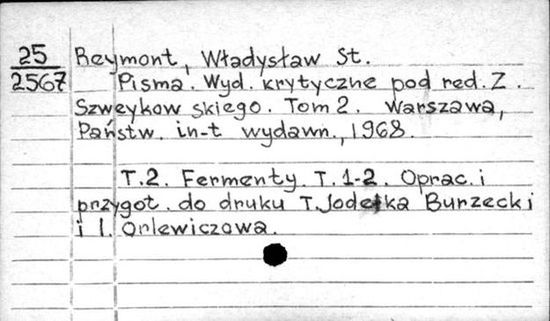 25 Reymont, Władysław St.
2567 Pisma. Wyd. krytyczne pod red. Z.
Szweykow skiego. Tom 2. Warszawa,
Państw. in-t wydawn., 1968.
T.2. Fermenty. T. 1-2. Oprac. i
przygot. do druku T. Jodełka Burzecki
i I. Orlewiczowa.